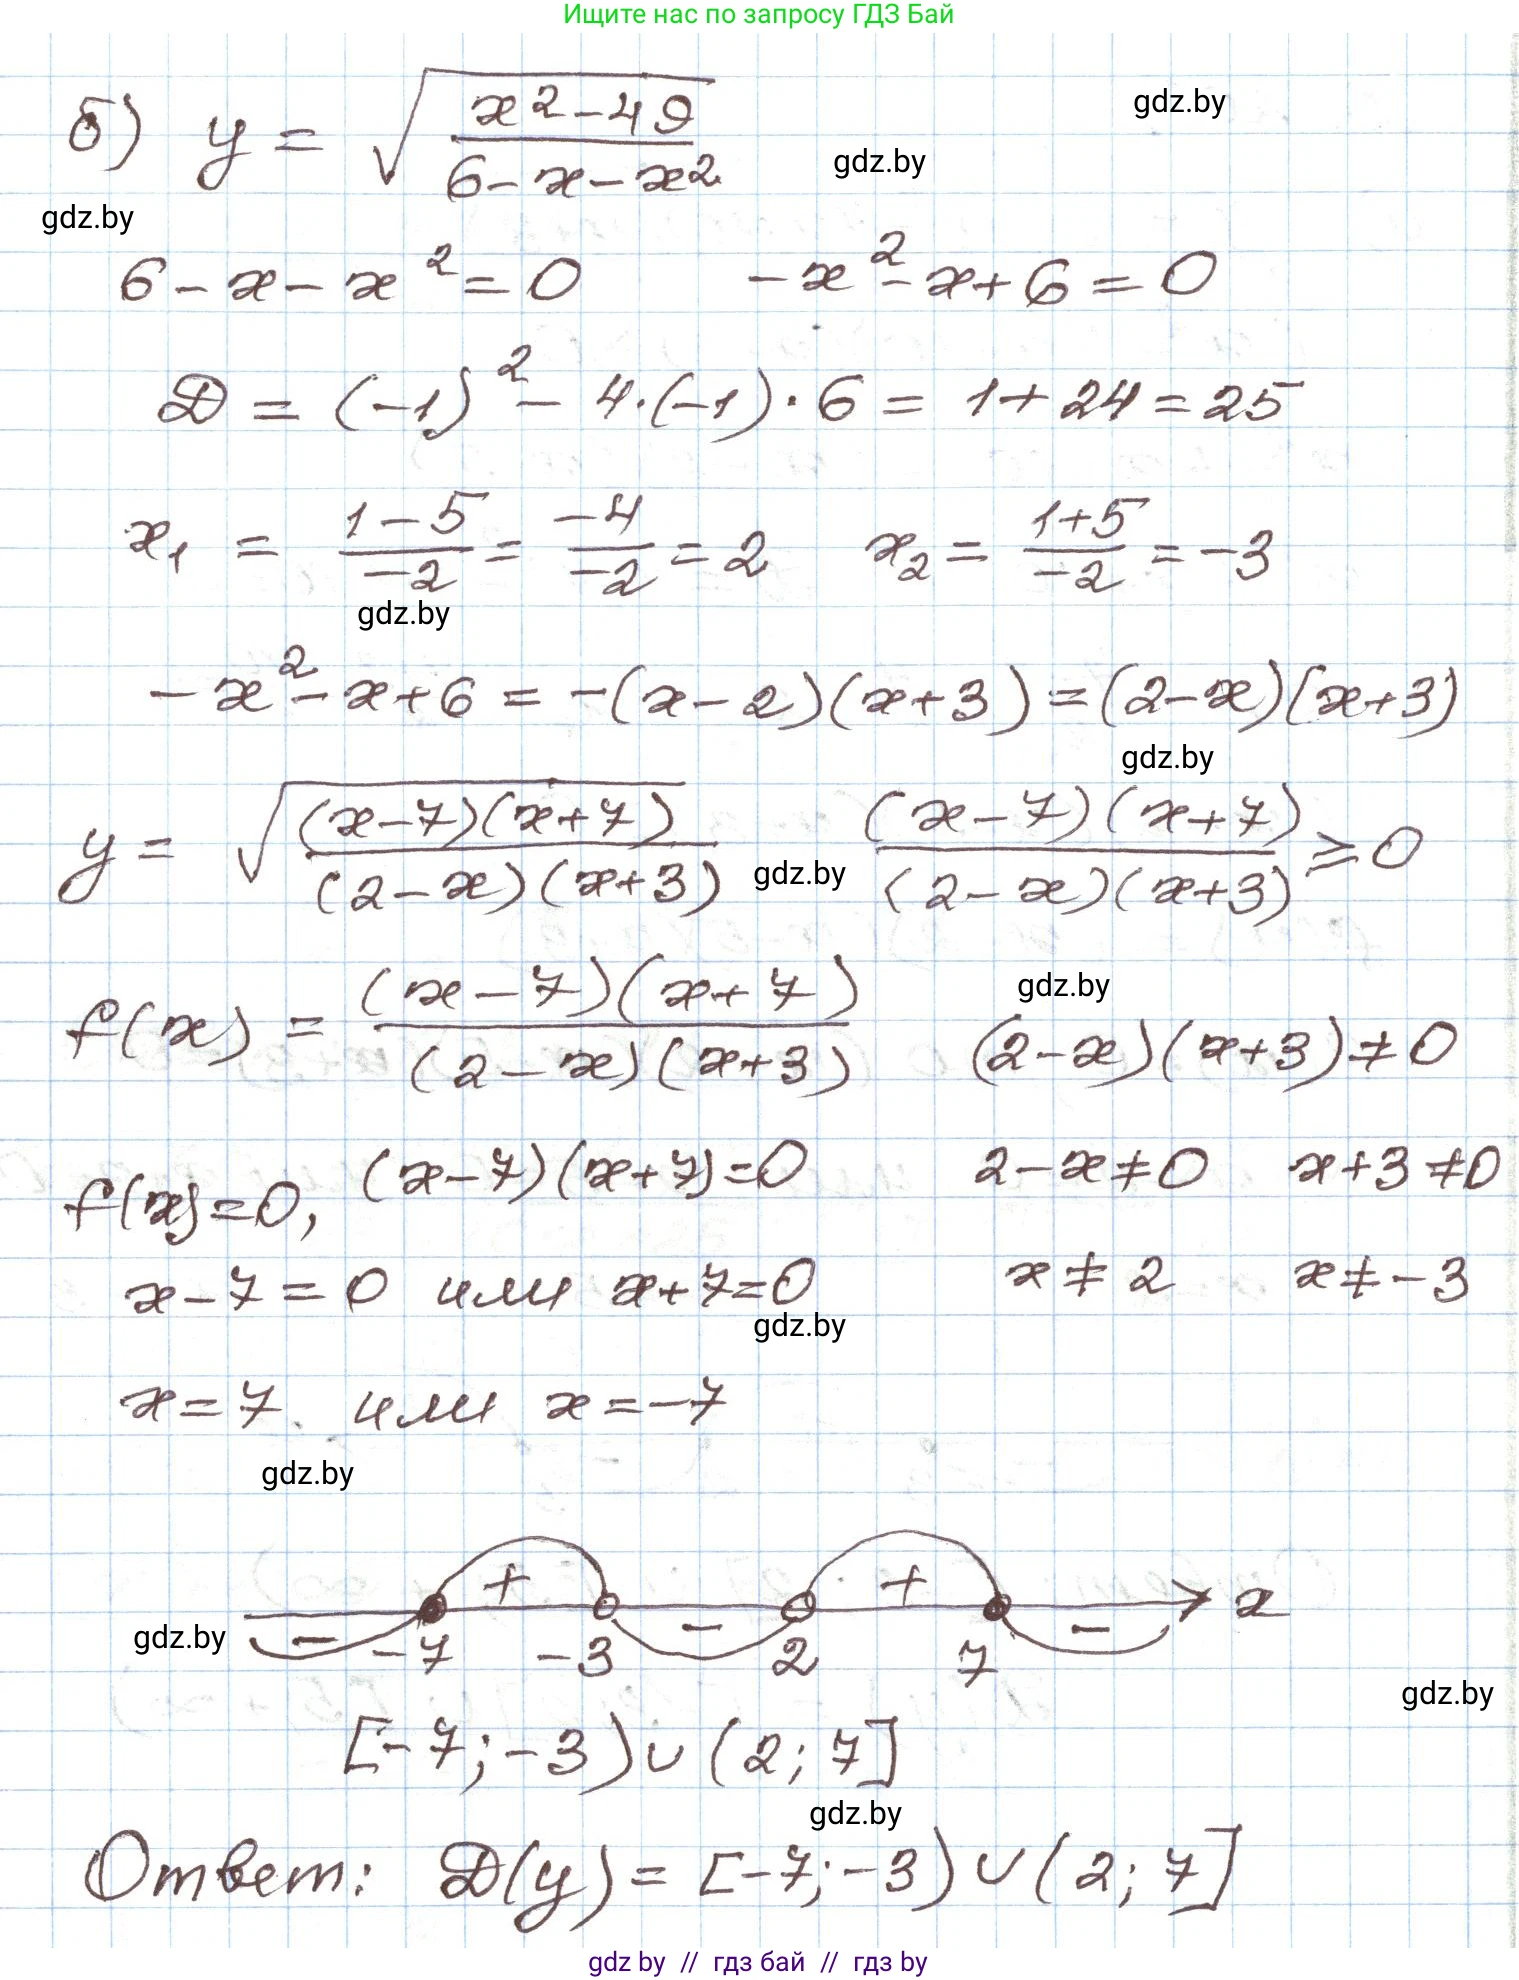 Ищите нас по запросу ГДЗ Бай
б) y = √((x² - 49)/(6 - x - x²))
gdz.by
gdz.by
gdz.by
6 - x - x² = 0   -x² - x + 6 = 0
D = (-1)² - 4·(-1)·6 = 1 + 24 = 25
x₁ = (1 - 5)/(-2) = (-4)/(-2) = 2   x₂ = (1 + 5)/(-2) = -3
gdz.by
-x² - x + 6 = -(x - 2)(x + 3) = (2 - x)(x + 3)
gdz.by
y = √(((x - 7)(x + 7))/((2 - x)(x + 3)))   ((x - 7)(x + 7))/((2 - x)(x + 3)) ≥ 0
gdz.by
f(x) = ((x - 7)(x + 7))/((2 - x)(x + 3))   (2 - x)(x + 3) ≠ 0
gdz.by
f(x) = 0, (x - 7)(x + 7) = 0   2 - x ≠ 0   x + 3 ≠ 0
x - 7 = 0 или x + 7 = 0   x ≠ 2   x ≠ -3
gdz.by
x = 7 или x = -7
gdz.by
- + - + - x
gdz.by
-7 -3 2 7
gdz.by
[-7; -3) ∪ (2; 7]
gdz.by
Ответ: D(y) = [-7; -3) ∪ (2; 7]
gdz by // гдз бай // гдз by